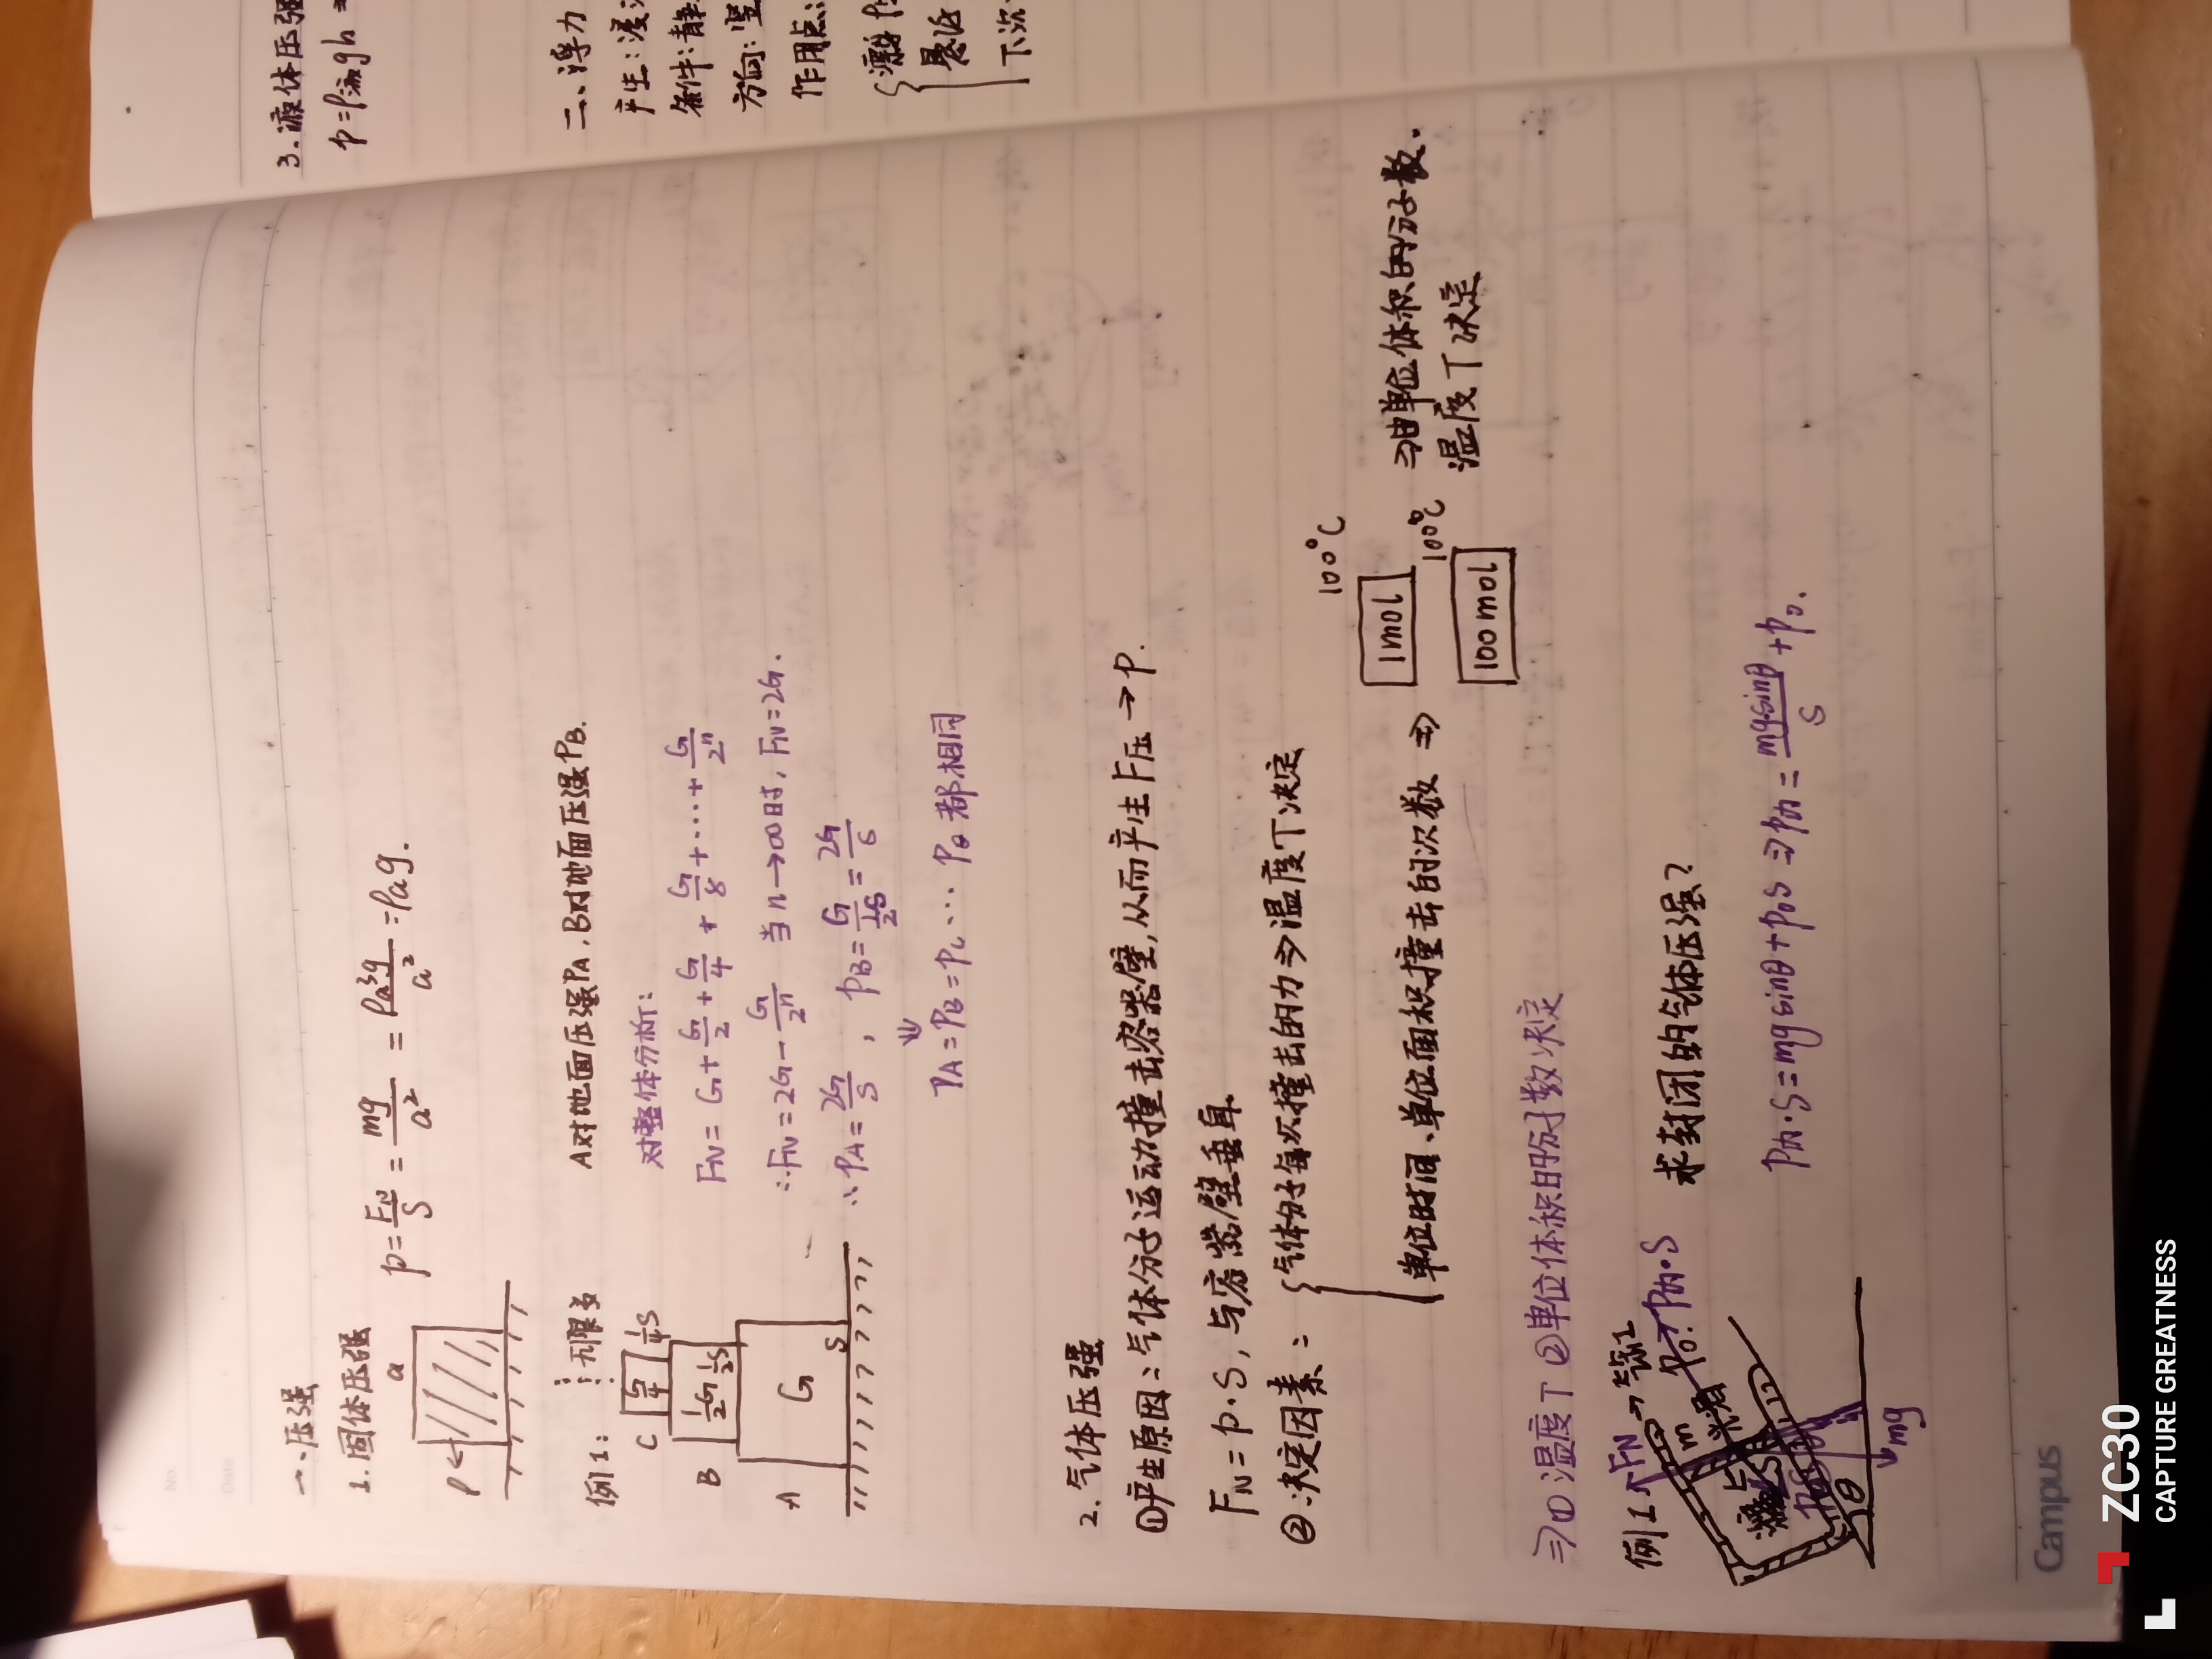 No.
Date
一、压强
1. 固体压强
a
ρ
p = F_N/S = mg/a² = ρa³g/a² = ρag.
例1:
⋮ 无限多
A对地面压强PA, B对地面压强PB.
C G/4 1/4S
B 1/2G 1/2S
A G S
对整体分析:
F_N = G + G/2 + G/4 + G/8 + ⋯ + G/2ⁿ
∴ F_N = 2G − G/2ⁿ 当n→∞时, F_N = 2G.
∴ PA = 2G/S , PB = G/(1/2 S) = 2G/S
⇓
PA = PB = PC ⋯ 都相同
2. 气体压强
①产生原因: 气体分子运动撞击容器壁, 从而产生F压 → P.
F_N = p·S, 与容器壁垂直
②决定因素:
气体分子每次撞击的力 ⇒ 温度T决定
单位时间、单位面积撞击的次数 ⇒
1mol 100°C
100mol 100℃
⇒ 由单位体积的分子数.
温度T决定
⇒ ① 温度T ② 单位体积的分子数决定
例1
F_N
m
光滑
P₀
P内·S
θ
mg
求封闭的气体压强?
P内·S = mg sinθ + P₀S ⇒ P内 = mg·sinθ/S + P₀.
Campus
3. 液体压强
p = ρ液gh
二、浮力
产生: 浸
条件: 静
方向: 竖
作用点:
漂浮
悬浮
下沉
ZC30
CAPTURE GREATNESS